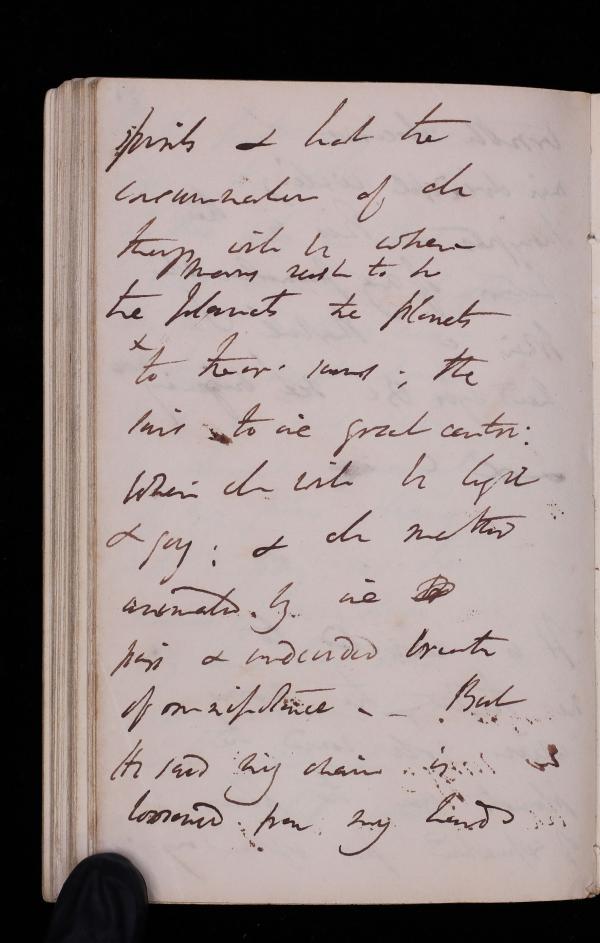 spirits & that the
consummation of all
things will be when
moons rush to be
the planets the planets
x to their suns ; the
suns to one great centre :
When all will be light
& joy : & all matter
animated by one
pure & undivided breath
of omnipotence – – But
He said my chain is
loosened from my hands